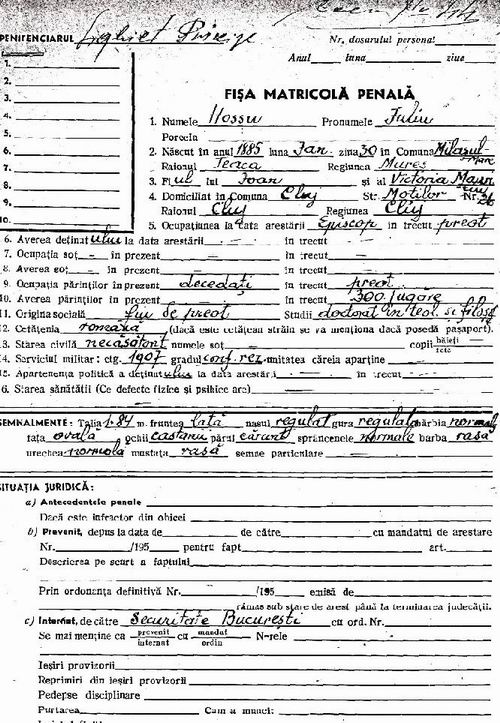 PENITENCIARUL Sighet Principe
Nr. dosarului personal
Anul luna ziua
1.
2.
3.
4.
5.
6.
7.
8.
9.
10.
FIȘA MATRICOLĂ PENALĂ
1. Numele Hossu Pronumele Iuliu
Porecla
2. Născut în anul 1885 luna Ian. ziua 30 în Comuna Milașul Mare
Raionul Teaca Regiunea Mureș
3. Fiul lui Ioan și al Victoria
4. Domiciliat în Comuna Cluj Str. Moților Nr. 26
Raionul Cluj Regiunea Cluj
5. Ocupațiunea la data arestării Episcop în trecut preot
6. Averea deținutului la data arestării - în trecut
7. Ocupația soț - în prezent - în trecut -
8. Averea soț - în prezent - în trecut -
9. Ocupația părinților în prezent decedați în trecut preot
10. Averea părinților în prezent în trecut 300 jugăre
11. Originasocială fiu de preot Studii doctorat în teol. și filosof
12. Cetățenia română (dacă este cetățean străin se va menționa dacă posedă pașaport).
13. Starea civilă necăsătorit numele soț copii băieți fete
14. Serviciul militar: ctg. 1907 gradul conf. rez. unitatea căreia aparține
15. Apartenența politică a deținutului la data arestării - în trecut -
16. Starea sănătății (Ce defecte fizice și psihice are)
SEMNALMENTE: Talia 1.84 m. fruntea lată nasul regulat gura regulată bărbia normală
fața ovală ochii castanii părul cărunt sprâncenele normale barba rasă
urechea normală mustața rasă semne particulare
SITUAȚIA JURIDICĂ:
a) Antecedentele penale
Dacă este infractor din obicei
b) Prevenit, depus la data de de către cu mandatul de arestare
Nr. /195 pentru fapt art.
Descrierea pe scurt a faptului
Prin ordonanța definitivă Nr. /195 emisă de
rămas sub stare de arest până la terminarea judecății.
c) Internat, de către Securitate București cu ord. Nr.
Se mai menține ca prevenit internat cu mandat ordin N-rele
Ieșiri provizorii
Reprimiri din ieșiri provizorii
Pedepse disciplinare
Purtarea Cum a muncit